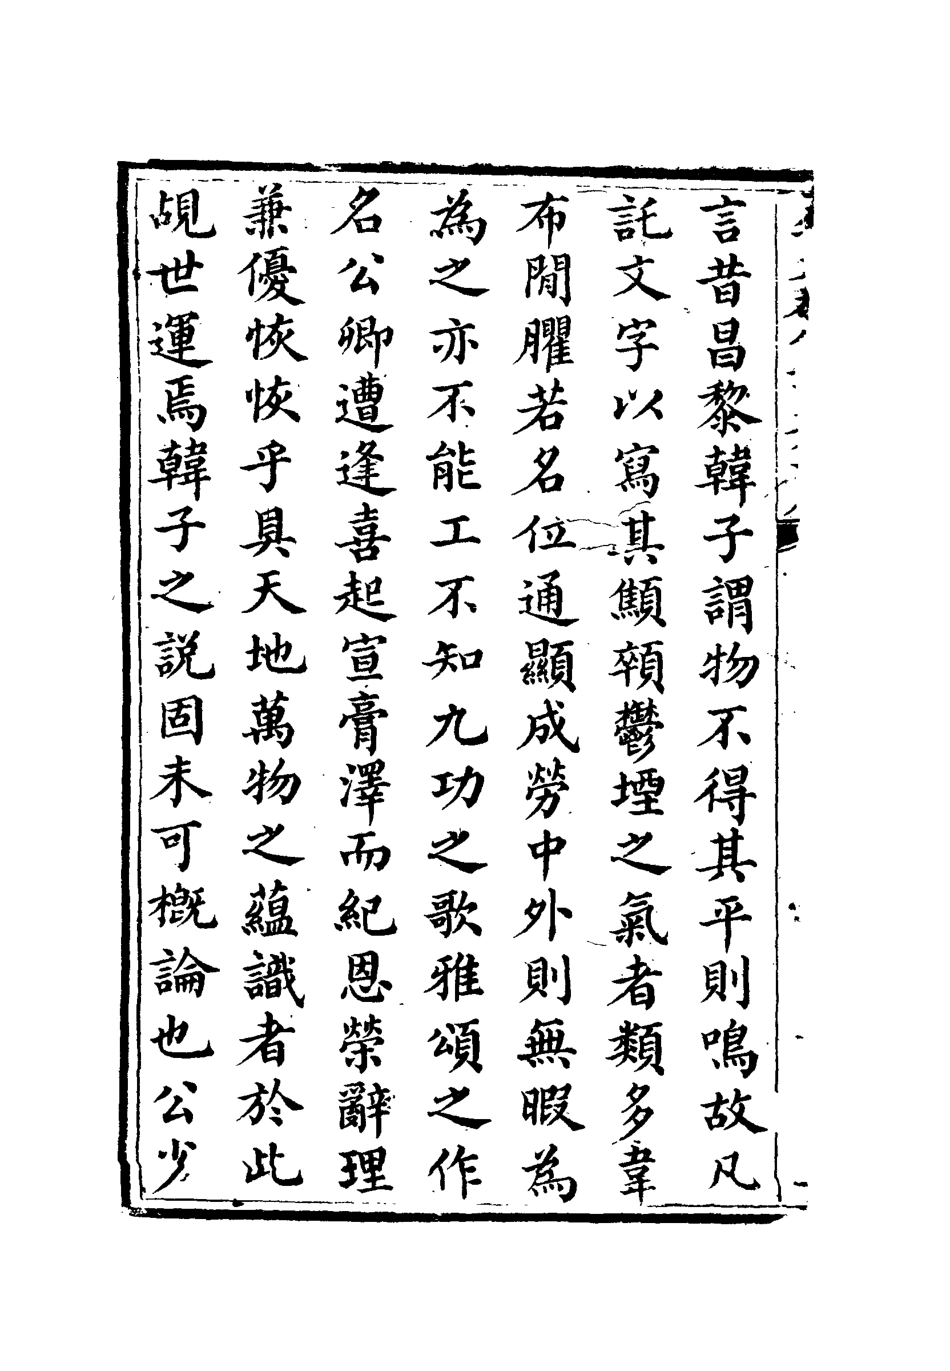 言昔昌黎韓子謂物不得其平則鳴故凡
託文字以寫其顦顇鬱堙之氣者類多韋
布閒臞若名位通顯成勞中外則無暇為
為之亦不能工不知九功之歌雅頌之作
名公卿遭逢喜起宣膏澤而紀恩榮辭理
兼優恢恢乎具天地萬物之蘊識者於此
覘世運焉韓子之説固未可概論也公少